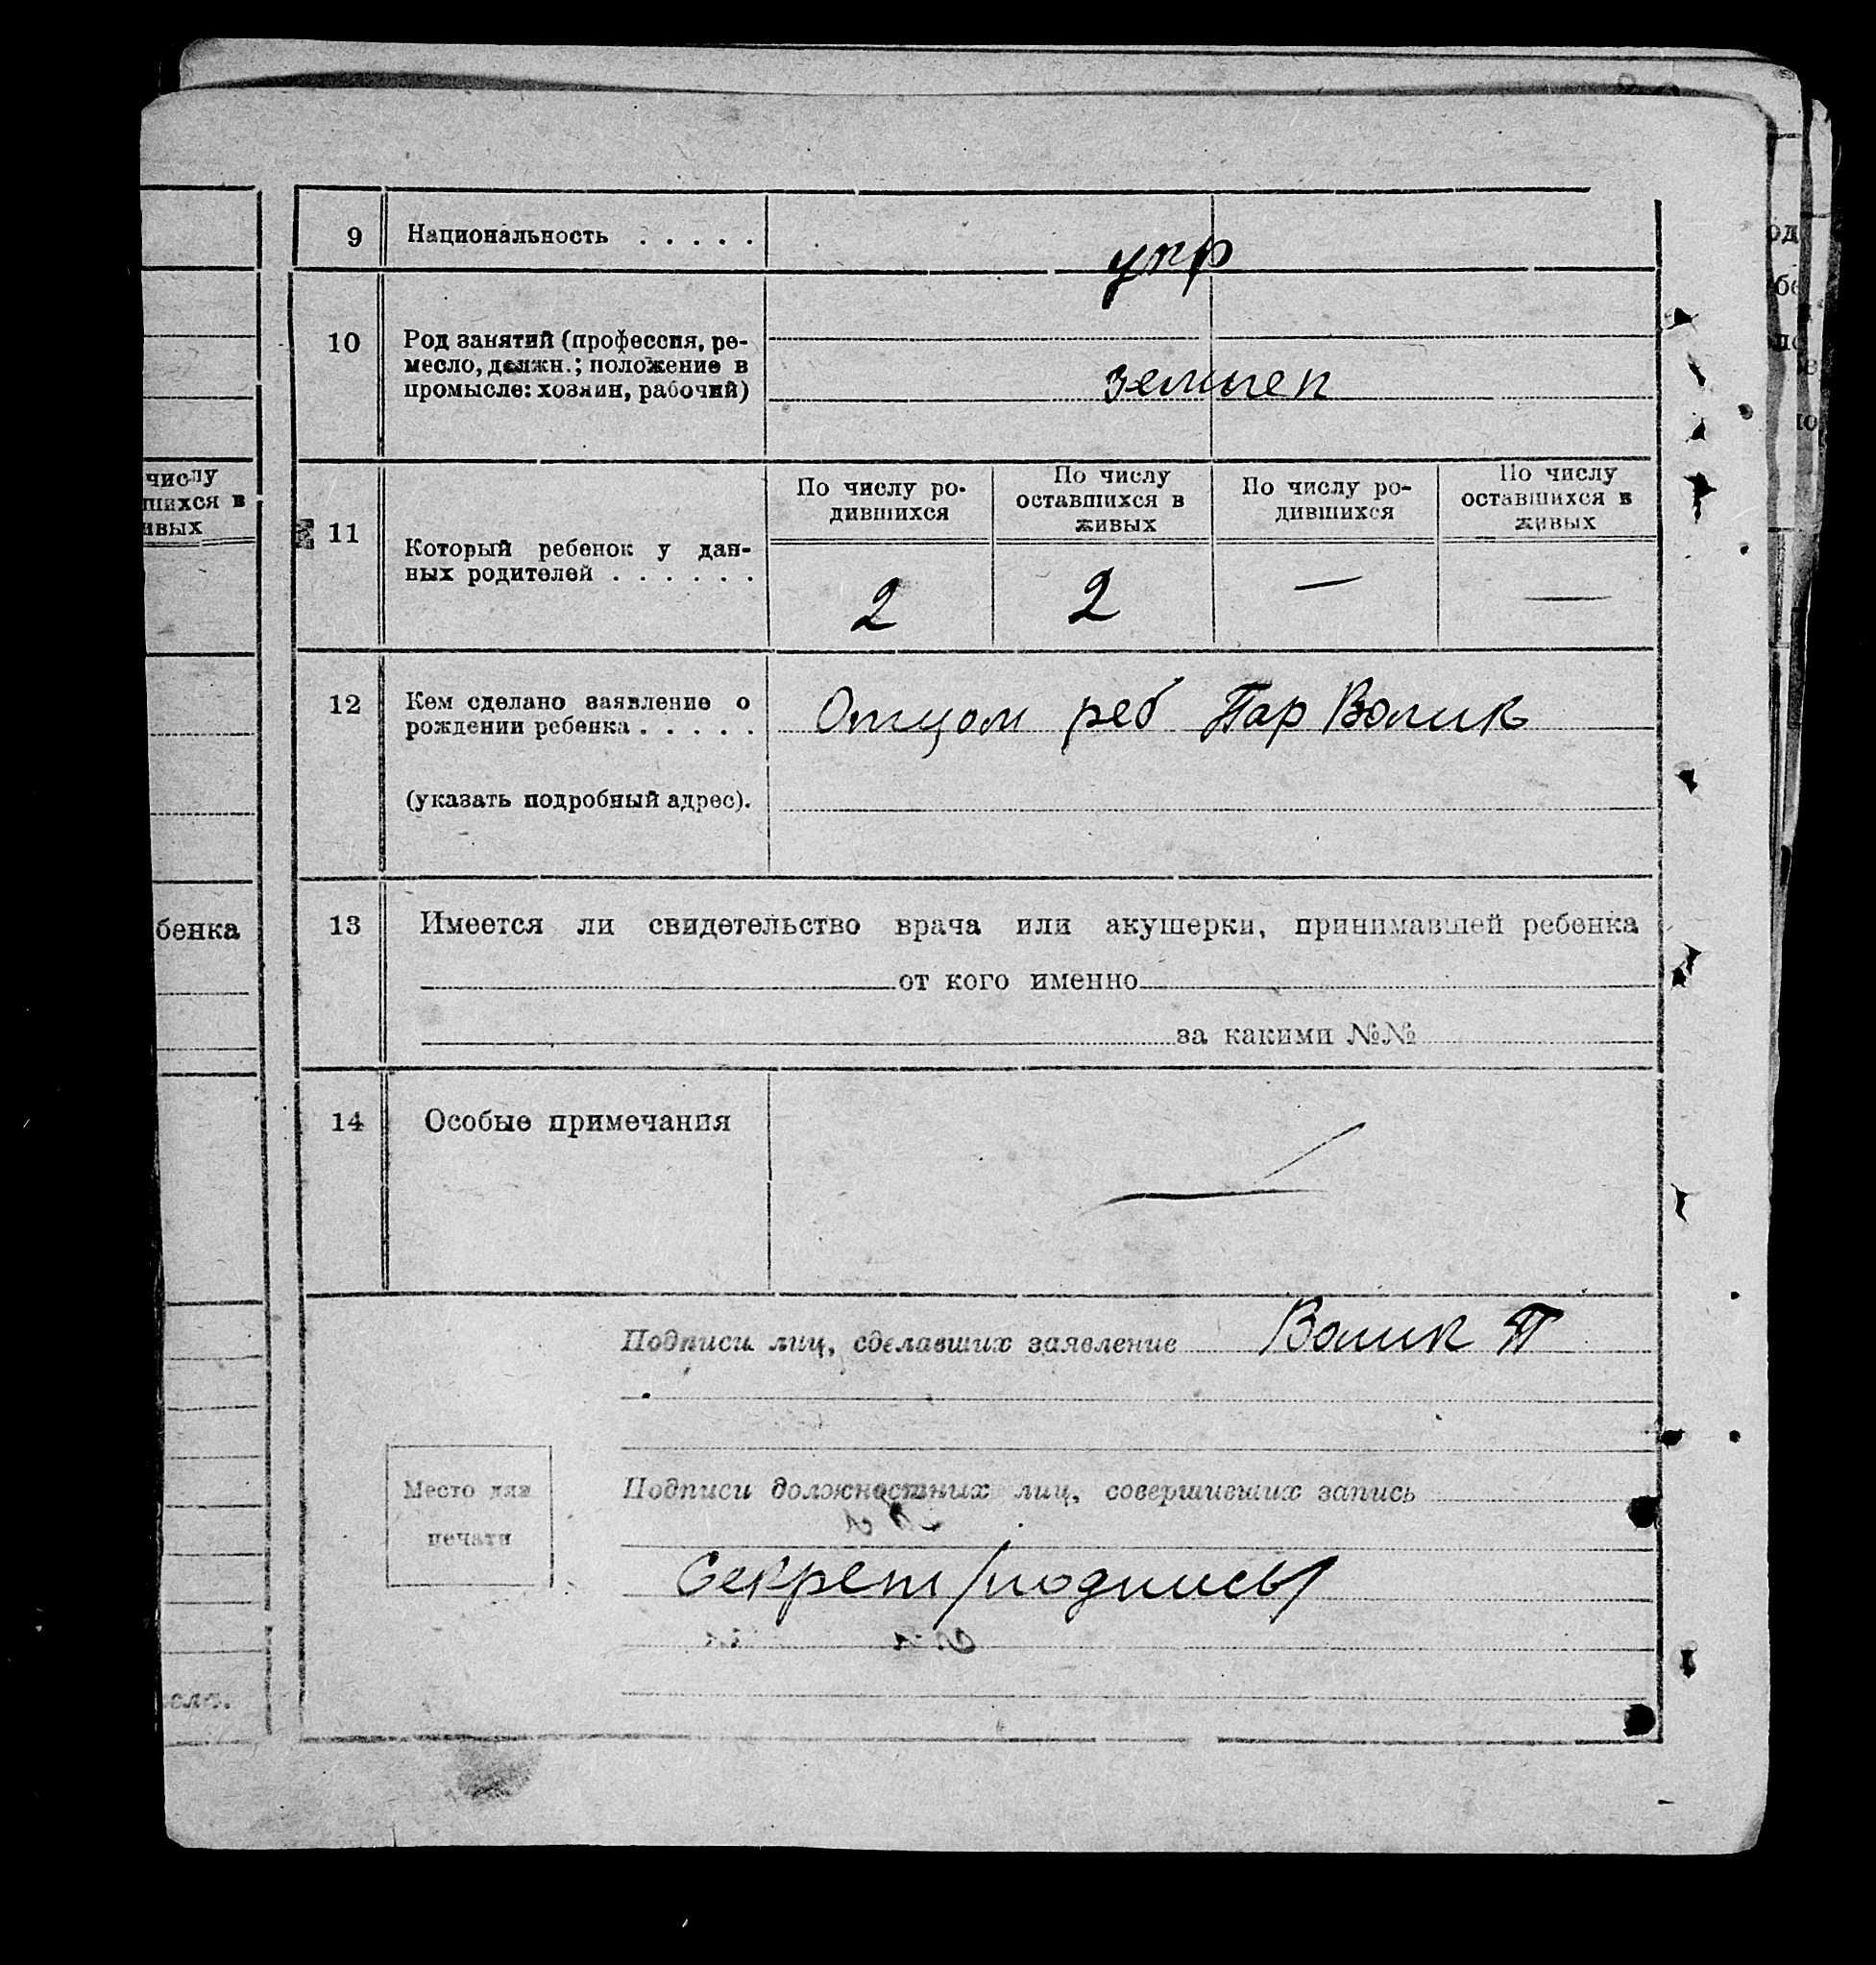 9 Национальность . . . . . укр
10 Род занятий (профессия, ре-
месло, должн.; положение в
промысле: хозяин, рабочий)
землеп
11 Который ребенок у дан-
ных родителей . . . . . .
По числу ро-
дившихся
По числу
оставшихся в
живых
По числу ро-
дившихся
По числу
оставшихся в
живых
2 2 — —
12 Кем сделано заявление о
рождении ребенка . . . . .
Отцом реб Пар Волик
(указать подробный адрес).
13 Имеется ли свидетельство врача или акушерки, принимавшей ребенка
от кого именно
за какими №№
14 Особые примечания —
Подписи лиц, сделавших заявление Волик П
Место для
печати
Подписи должностных лиц, совершивших запись
Секрет /подпись/
числу
шихся в
ивых
бенка